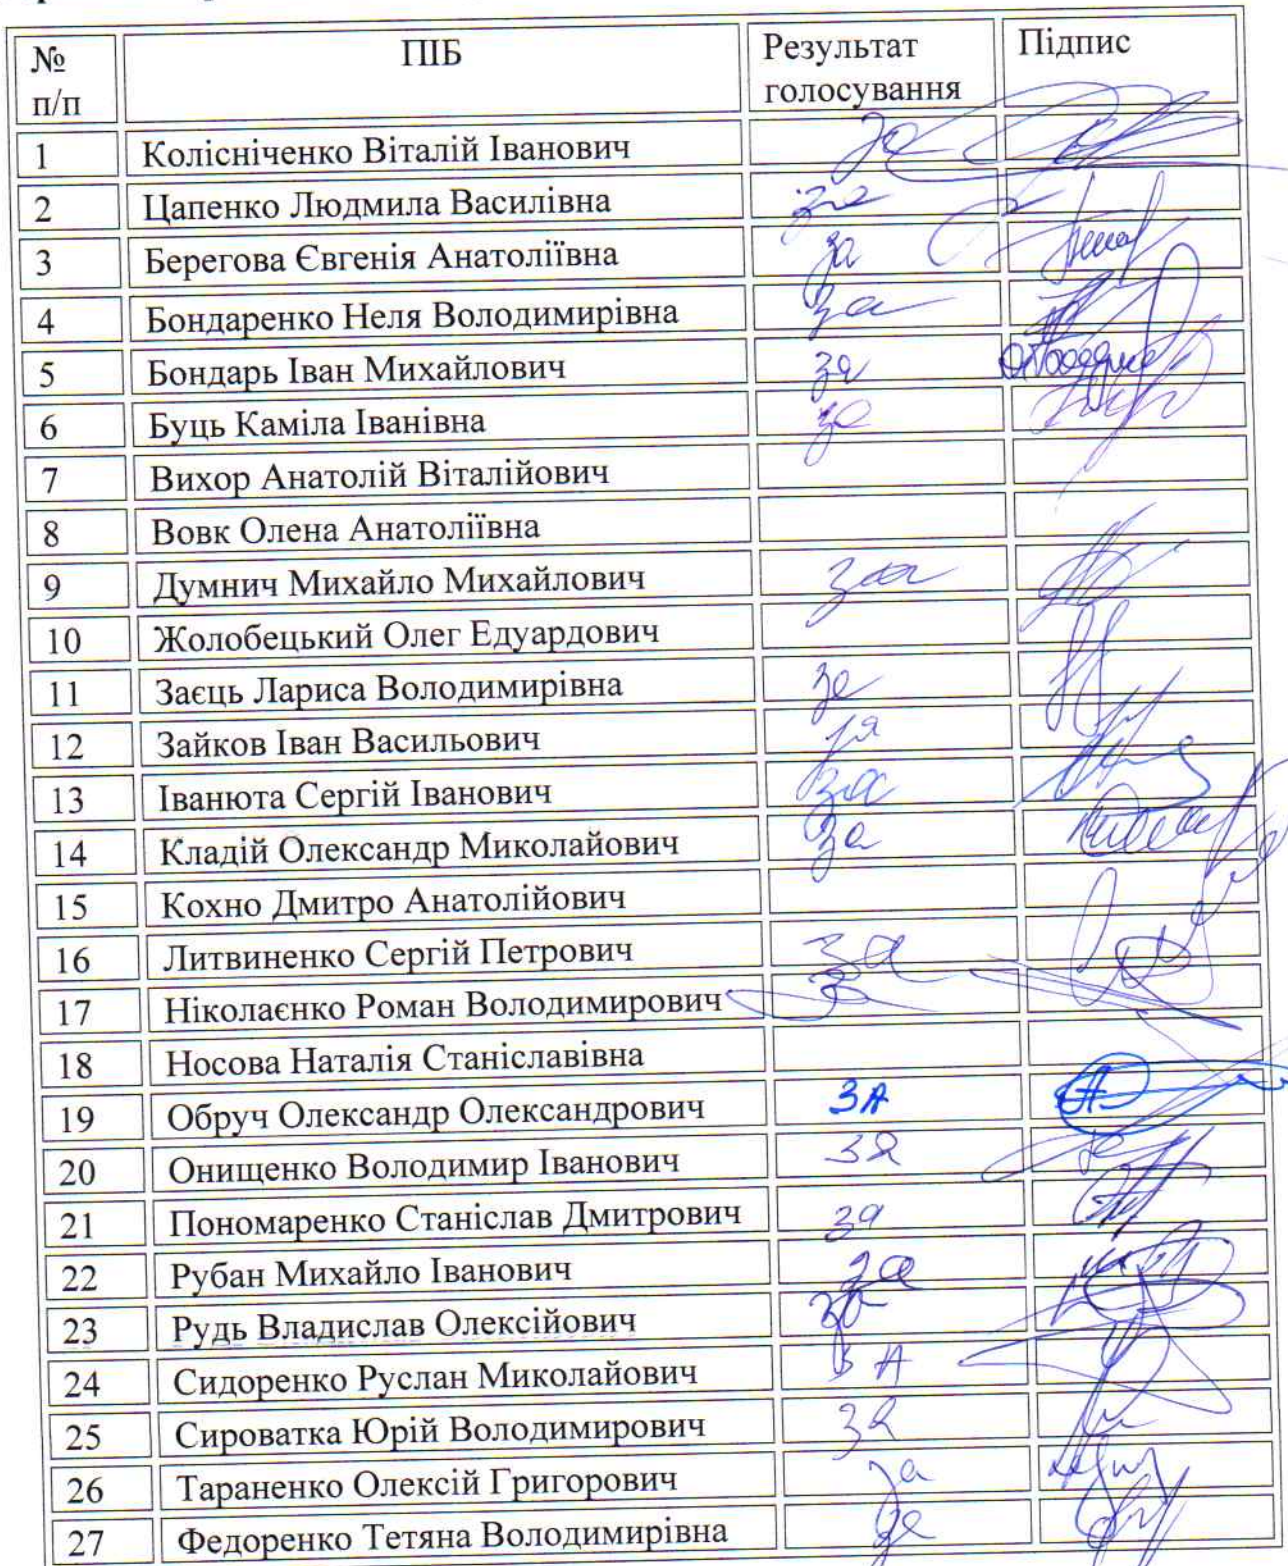 № п/п ПІБ Результат голосування Підпис
1 Колісніченко Віталій Іванович за
2 Цапенко Людмила Василівна за
3 Берегова Євгенія Анатоліївна за
4 Бондаренко Неля Володимирівна за
5 Бондарь Іван Михайлович за
6 Буць Каміла Іванівна за
7 Вихор Анатолій Віталійович
8 Вовк Олена Анатоліївна
9 Думнич Михайло Михайлович за
10 Жолобецький Олег Едуардович
11 Заєць Лариса Володимирівна за
12 Зайков Іван Васильович за
13 Іванюта Сергій Іванович за
14 Кладій Олександр Миколайович за
15 Кохно Дмитро Анатолійович
16 Литвиненко Сергій Петрович за
17 Ніколаєнко Роман Володимирович
18 Носова Наталія Станіславівна
19 Обруч Олександр Олександрович ЗА
20 Онищенко Володимир Іванович за
21 Пономаренко Станіслав Дмитрович за
22 Рубан Михайло Іванович за
23 Рудь Владислав Олексійович за
24 Сидоренко Руслан Миколайович ЗА
25 Сироватка Юрій Володимирович за
26 Тараненко Олексій Григорович за
27 Федоренко Тетяна Володимирівна за